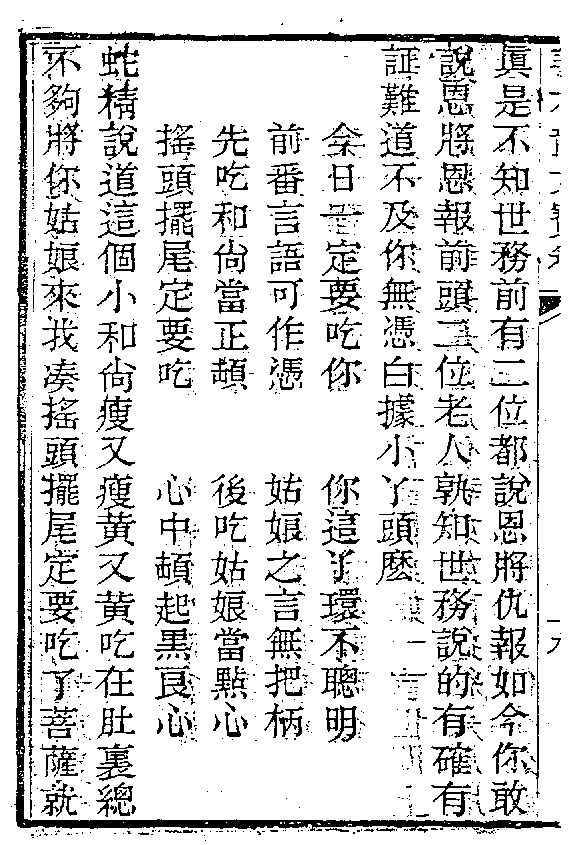 眞是不知世務前有二位都說恩將仇報如今你敢
說恩將恩報前頭二位老人孰知世務說的有確有
証難道不及你無憑白據小丫頭麽
今日一定要吃你　你這丫環不聰明
前番言語可作憑　姑娘之言無把柄
先吃和尙當正頓　後吃姑娘當點心
搖頭擺尾定要吃　心中頓起黑良心
蛇精說道這個小和尙瘦又瘦黃又黃吃在肚裏總
不夠將你姑娘來我凑搖頭擺尾定要吃了菩薩就